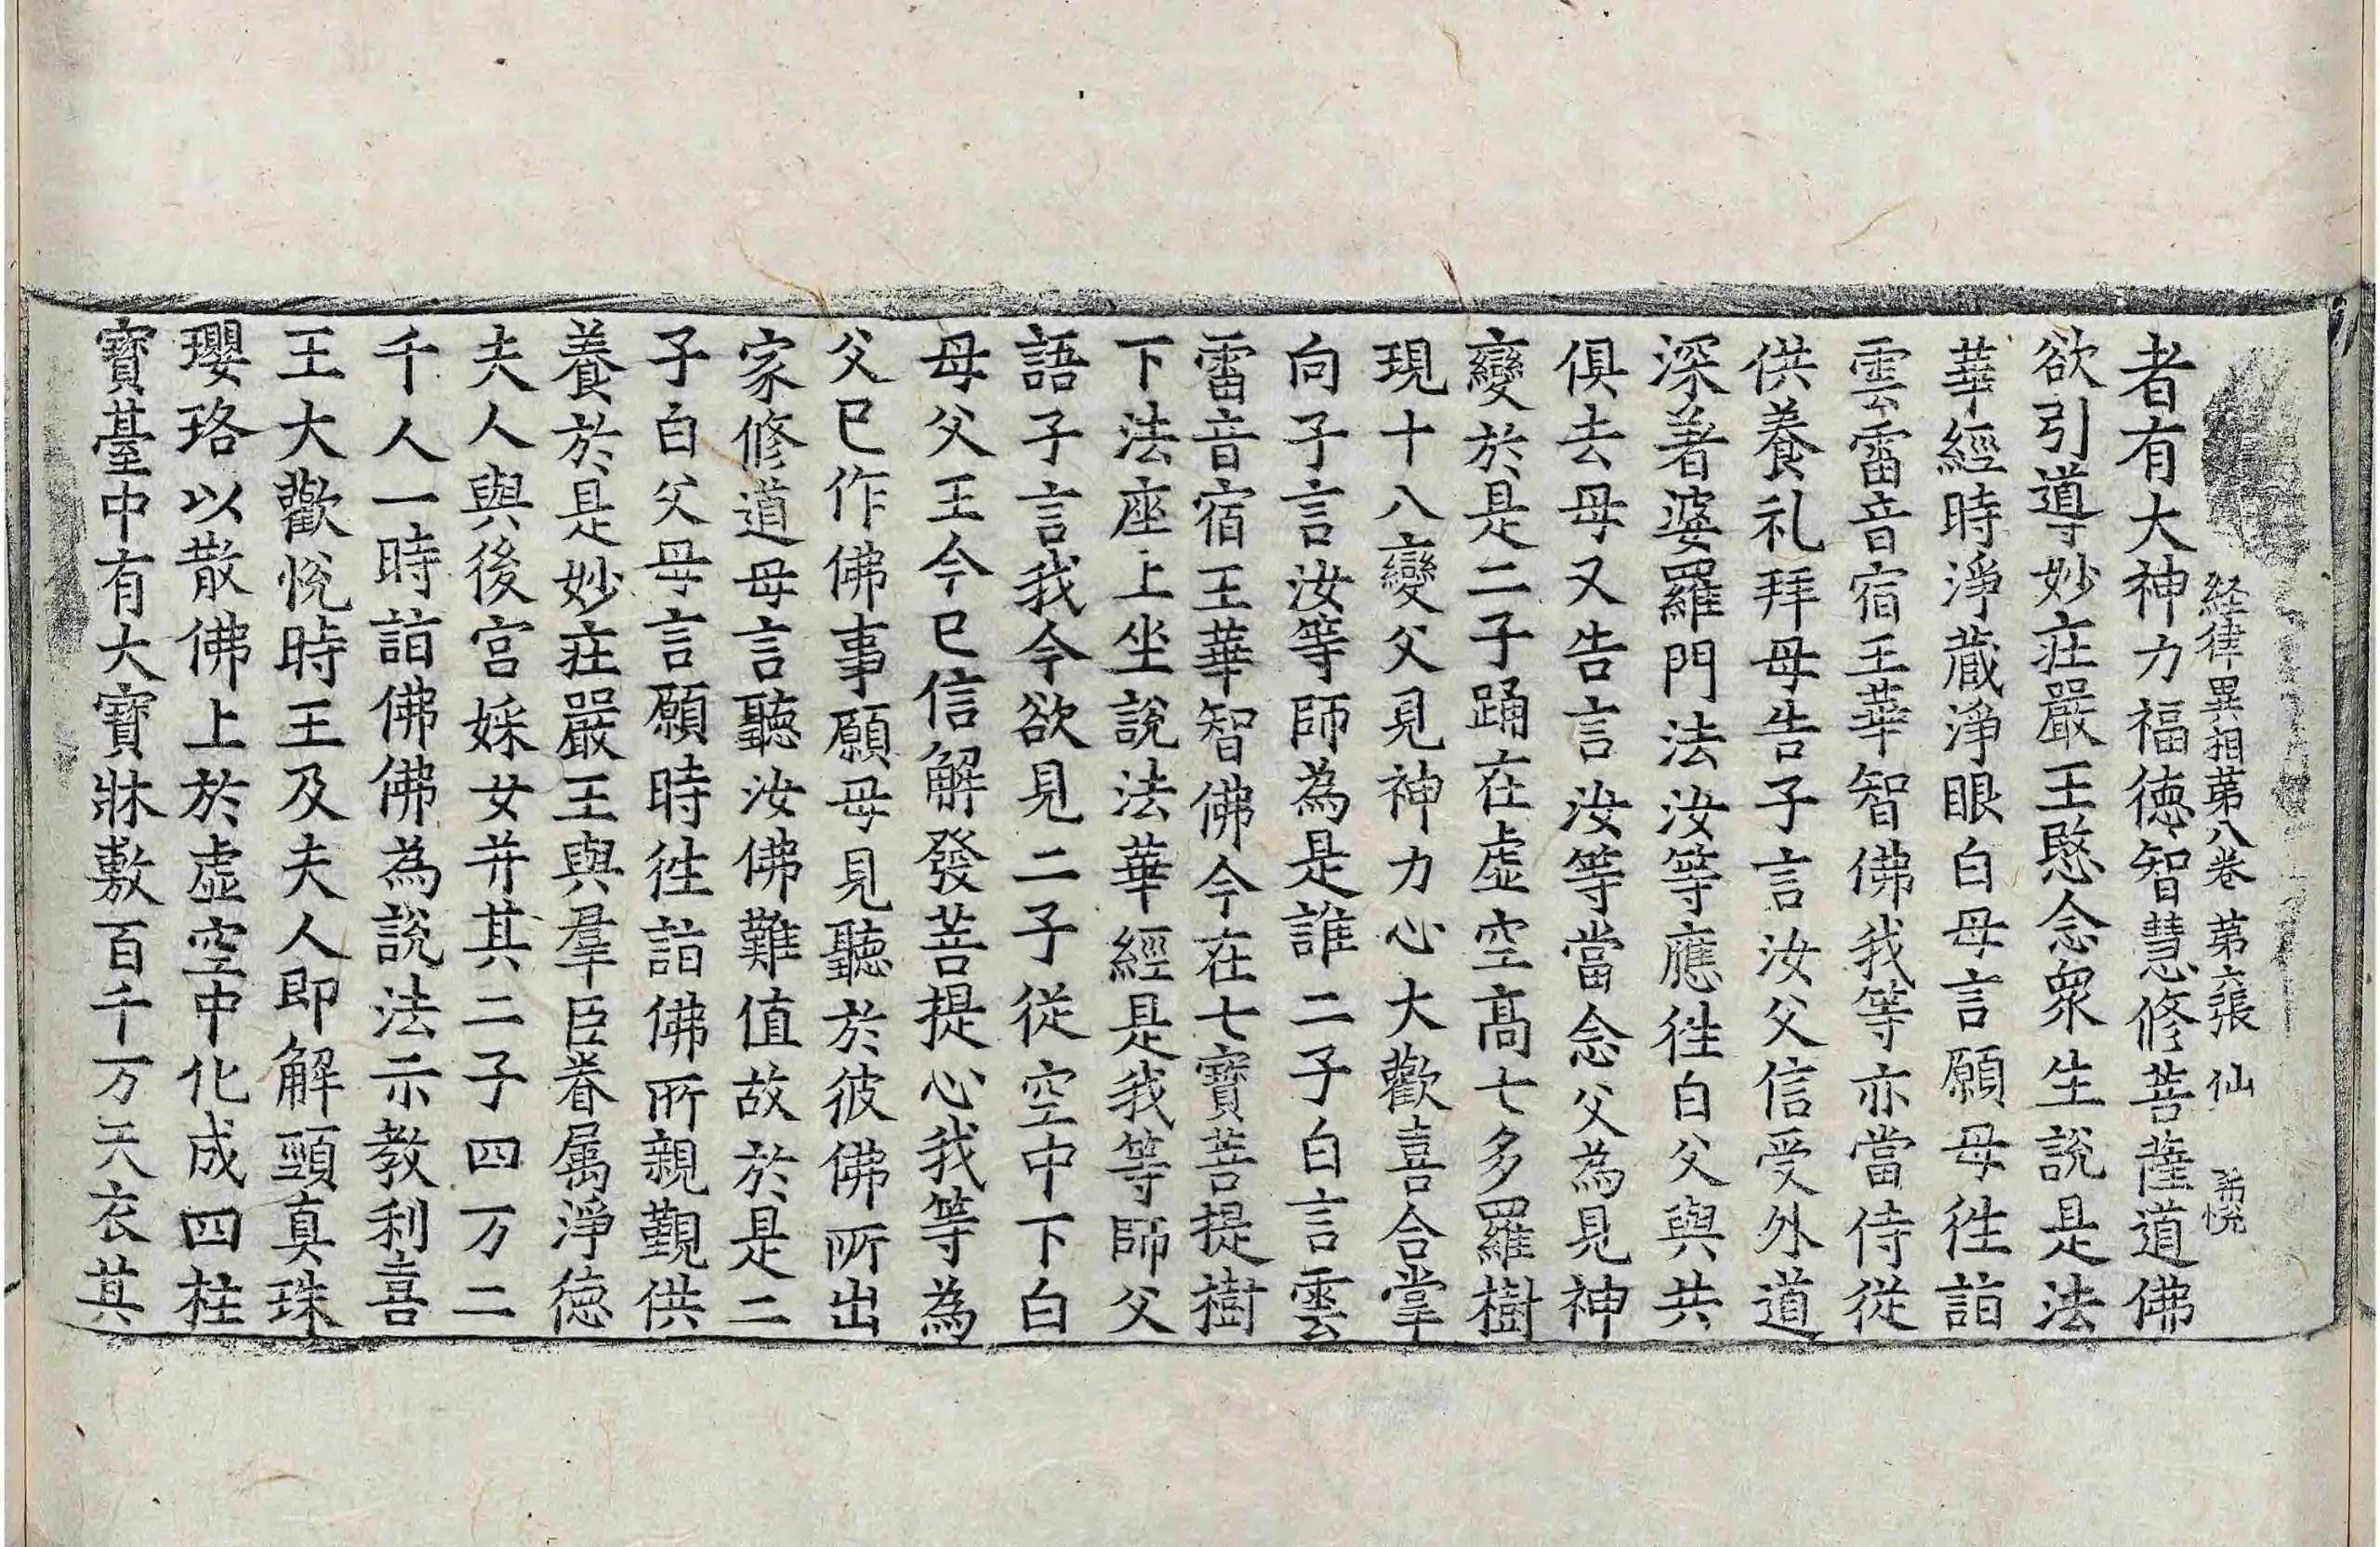 経律異相苐八卷 苐六張 仙 希悅
者有大神力福德智慧修菩薩道佛
欲引導妙莊嚴王愍念衆生說是法
華經時淨蔵淨眼白母言願母徃詣
雲雷音宿王華智佛我等亦當侍從
供養礼拜母告子言汝父信受外道
深著婆羅門法汝等應徃白父與共
俱去母又告言汝等當念父為見神
變於是二子踊在虛空髙七多羅樹
現十八變父見神力心大歡喜合掌
向子言汝等師為是誰二子白言雲
雷音宿王華智佛今在七寶菩提樹
下法座上坐說法華經是我等師父
語子言我今欲見二子從空中下白
母父王今已信解發菩提心我等為
父已作佛事願母見聽於彼佛所出
家修道母言聽汝佛難值故於是二
子白父母言願時徃詣佛所親覲供
養於是妙莊嚴王與羣臣眷属淨德
夫人與後宮婇女并其二子四万二
千人一時詣佛佛為說法示教利喜
王大歡悅時王及夫人即解頸真珠
瓔珞以散佛上於虛空中化成四柱
寶臺中有大寶牀敷百千万天衣其